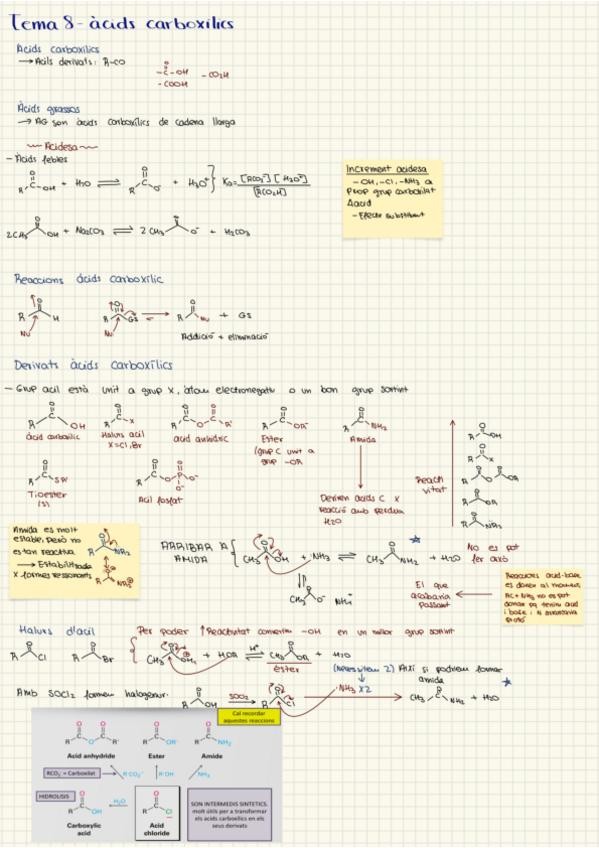 Tema 8 - àcids carboxílics
Àcids carboxílics
→ Acils derivats: R-CO
-C-OH -CO2H
-COOH
Àcids grassos
→ AG són àcids carboxílics de cadena llarga
Acidesa
- Àcids febles
R OH + H2O ⇌ R O- + H3O+ } Ka = [RCO2-] [H3O+]
[RCO2H]
Increment acidesa
-OH, -Cl, -NH3 a
prop grup carboxilat
Δacid
- Efecte substituent
2CH3 OH + Na2CO3 ⇌ 2 CH3 O- + H2CO3
Reaccions àcids carboxílic
R H
Nu
R GS → R Nu + GS
Nu
Addició + eliminació
Derivats àcids carboxílics
- Grup acil està unit a grup X, àtom electronegatiu o un bon grup sortint
R OH
àcid carboxílic
R X
Halurs acil
X=Cl, Br
R O R'
acid anhídric
R OR'
Ester
(grup C unit a
grup -OR
R NH2
Amida
R SR'
Tioester
(S)
R O P O-
O-
Acil fosfat
Deriven àcids C x
reacció amb pèrdua
H2O
Reacti
vitat
R OH
R X
R O OR
R OR
R NR2
Amida és molt
estable, però no
és tan reactiva
R NR2
→ Estabilitzada
x formes ressonants
R NR2
ARRIBAR A
AMIDA
CH3 OH + :NH3 ⇌ CH3 NH2 + H2O
No es pot
fer això
CH3 O- NH4+
El que
acabaria
passant
Reaccions àcid-base
es donen al moment
AC + NH3 no es pot
donar pq tenim acid
i base
Halurs d'àcil
R Cl R Br
Per poder ↑ Reactivitat convertim -OH en un millor grup sortint
CH3 OH + HOR ⇌ H+ CH3 OR + H2O
èster
(Necessitem 2) Així si podríem formar
amida
Amb SOCl2 formem halogenur:
R OH SOCl2 → R Cl :NH3 x2 → CH3 C NH2 + H2O
Cal recordar
aquestes reaccions
Acid anhydride
Ester
Amide
RCO2- = Carboxilat
R'CO2-
R'OH
NH3
HIDROLISIS
H2O
Carboxylic
acid
Acid
chloride
SON INTERMEDIS SINTETICS.
molt útils per a transformar
els àcids carboxílics en els
seus derivats